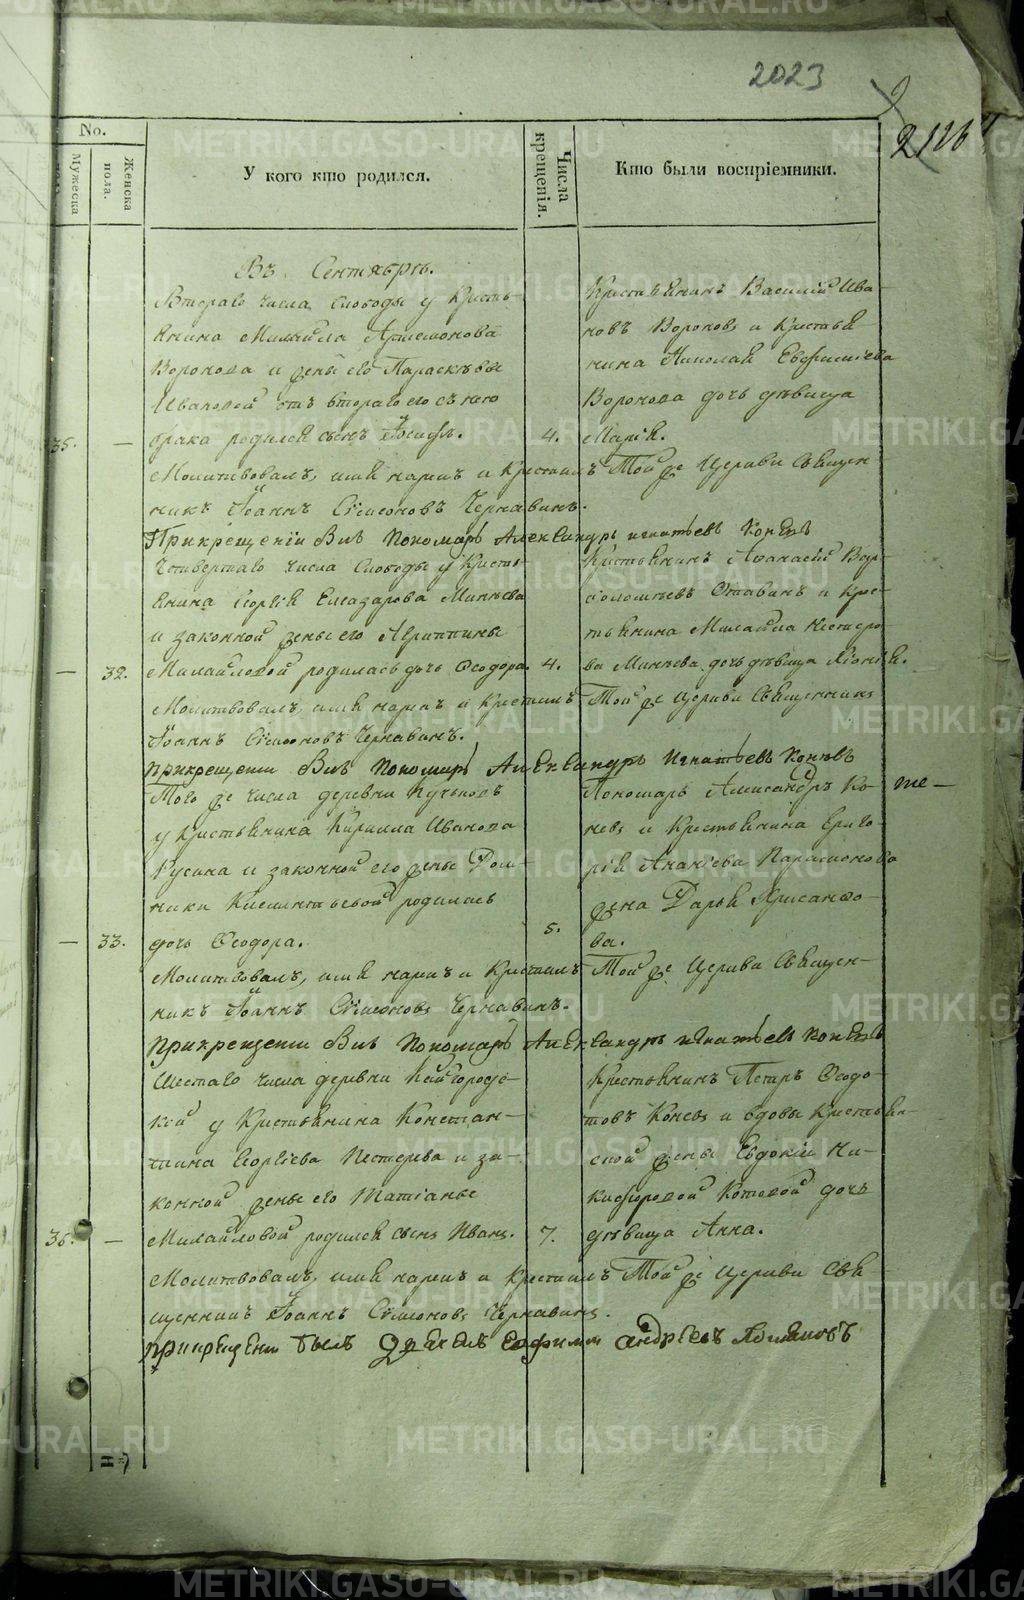 2023
2126
No.
Мужеска
пола.
Женска
пола.
У кого кто родился.
Числа
крещенія.
Кто были воспріемники.
Въ Сентябрѣ.
Втораго числа слободы у Кресть-
янина Михайла Артемонова
Воронова и жены его Параскѣвы
Ивановой отъ втораго его съ нею
35. — брака родился сынъ Іосифъ. 4.
Крестьянинъ Василій Ива-
новъ Вороновъ и Крестья-
нина Николая Евфиміева
Воронова дочь дѣвица
Марія.
Молитвовалъ, имя нарекъ и Крестилъ Той же Церкви Священ-
никъ Іоаннъ Симеоновъ Чернавинъ.
При крещеніи Былъ Пономарь Александръ Игнатьевъ Коневъ
Четвертаго числа слободы у Кресть-
янина Георгія Елеазарова Минѣева
и законной жены его Агриппины
— 32. Михайловой родилась дочь Ѳеодора. 4.
Крестьянинъ Аѳанасій Вар-
ѳоломѣевъ и Крес-
тьянина Михайла Нестеро-
ва Минѣева дочь дѣвица Хіонія.
Молитвовалъ, имя нарекъ и Крестилъ Той же Церкви Священникъ
Іоаннъ Симеоновъ Чернавинъ.
При крещеніи Былъ Пономарь Александръ Игнатьевъ Коневъ
Того же числа деревни
у Крестьянина Кирилла Иванова
Русина и законной его жены Дом-
ники Климентьевой родилась
— 33. дочь Ѳеодора. 5.
Пономарь Александръ Ко-
невъ и Крестьянина Григо-
рія Ананіева Парамонова
жена Дарья Хрисанфо-
ва.
Молитвовалъ, имя нарекъ и Крестилъ Той же Церкви Священ-
никъ Іоаннъ Симеоновъ Чернавинъ.
При крещеніи Былъ Пономарь Александръ Игнатьевъ Коневъ
Шестаго числа деревни Кайгородс-
кой у Крестьянина Констан-
тина Георгіева Нестерова и за-
конной жены его Татіаны
36. — Михайловой родился сынъ Иванъ. 7.
Крестьянинъ Петръ Ѳедо-
товъ Коневъ и вдовы Крестьян-
ской жены Евдокіи Ни-
кифоровой Котовой дочь
дѣвица Анна.
Молитвовалъ, имя нарекъ и Крестилъ Той же Церкви Свя-
щенникъ Іоаннъ Симеоновъ Чернавинъ.
При крещеніи былъ Дьячекъ Евфимій Андреевъ
METRIKI.GASO-URAL.RU